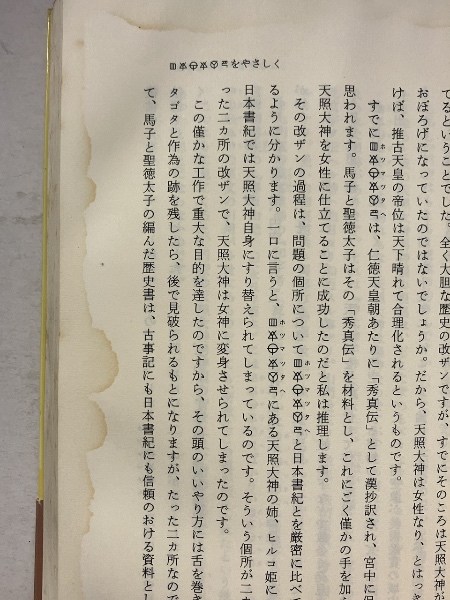 をやさしく
てるということでした。全く大胆な歴史の改ザンですが、すでにそのころは天照大神が
おぼろげになっていたのではないでしょうか。だから、天照大神は女性なり、とはっき
けば、推古天皇の帝位は天下晴れて合理化されるというものです。
すでにホツマツタヘは、仁徳天皇朝あたりに「秀真伝」として漢抄訳され、宮中に
思われます。馬子と聖徳太子はその「秀真伝」を材料とし、これにごく僅かの手を加
天照大神を女性に仕立てることに成功したのだと私は推理します。
その改ザンの過程は、問題の個所についてホツマツタヘと日本書紀とを厳密に比べて
るように分かります。一口に言うと、ホツマツタヘにある天照大神の姉、ヒルコ姫に
日本書紀では天照大神自身にすり替えられてしまっているのです。そういう個所が二
った二カ所の改ザンで、天照大神は女神に変身させられてしまったのです。
この僅かな工作で重大な目的を達したのですから、その頭のいいやり方には舌を巻き
タゴタと作為の跡を残したら、後で見破られるもとになりますが、たった二カ所なので
て、馬子と聖徳太子の編んだ歴史書は、古事記にも日本書紀にも信頼のおける資料とし